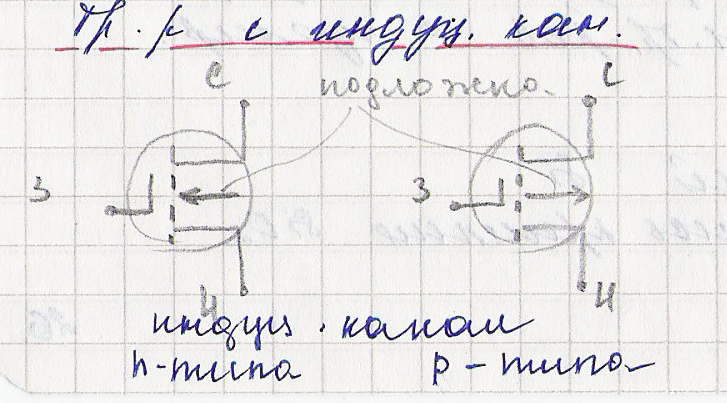 Тр. р с индуц. кан.
С подложка. С
З З
И И
индуц. канал
n-типа p-типа